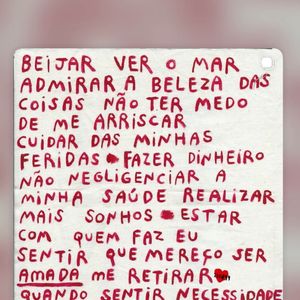 BEIJAR VER O MAR
ADMIRAR A BELEZA DAS
COISAS NÃO TER MEDO
DE ME ARRISCAR
CUIDAR DAS MINHAS
FERIDAS • FAZER DINHEIRO
NÃO NEGLIGENCIAR A
MINHA SAÚDE REALIZAR
MAIS SONHOS • ESTAR
COM QUEM FAZ EU
SENTIR QUE MEREÇO SER
AMADA ME RETIRAR
QUANDO SENTIR NECESSIDADE